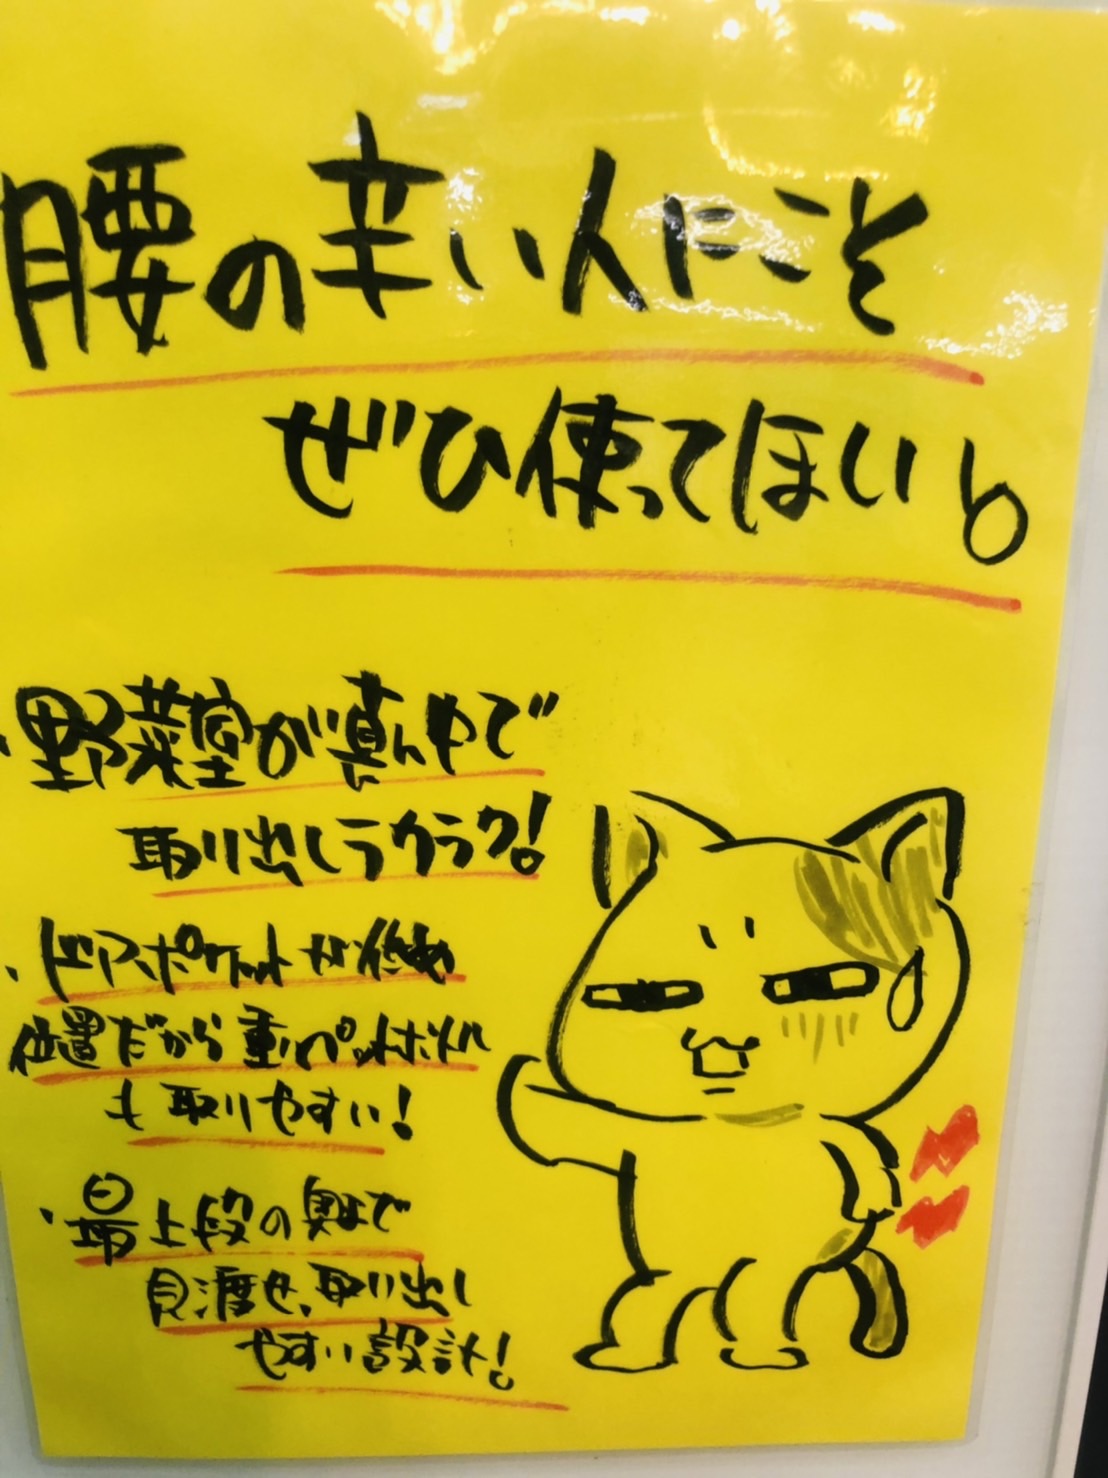 腰の辛い人にこそ
ぜひ使ってほしい。
・野菜室が真ん中で
取り出しラクラク!
・ドアポケットが低め
位置だから重いペットボトル
も取りやすい!
・最上段の奥まで
見渡せ、取り出し
やすい設計!